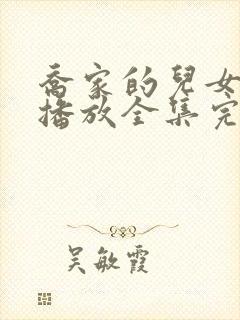 喬家的兒女
播放全集完
吴敏霞